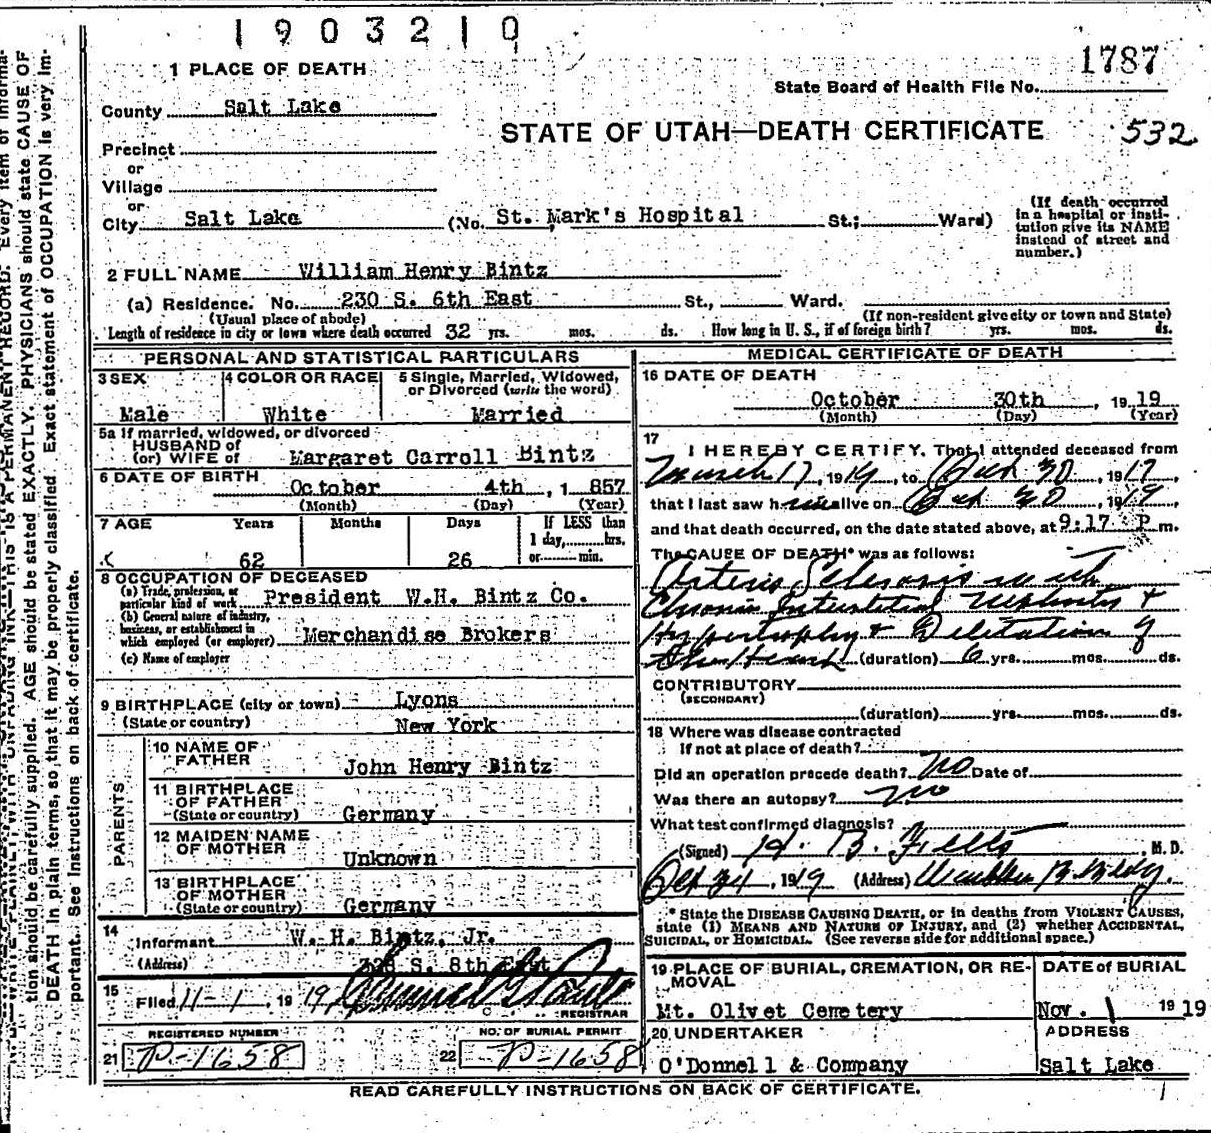 1903210
1787
State Board of Health File No.
532
STATE OF UTAH—DEATH CERTIFICATE
1 PLACE OF DEATH
County Salt Lake
Precinct
or
Village
or
City Salt Lake (No. St. Mark's Hospital St.; Ward)
(If death occurred
in a hospital or insti-
tution give its NAME
instead of street and
number.)
2 FULL NAME William Henry Bintz
(a) Residence. No. 230 S. 6th East St., Ward.
(Usual place of abode) (If non-resident give city or town and State)
Length of residence in city or town where death occurred 32 yrs. mos. ds. How long in U. S., if of foreign birth? yrs. mos. ds.
PERSONAL AND STATISTICAL PARTICULARS
3 SEX
Male
4 COLOR OR RACE
White
5 Single, Married, Widowed,
or Divorced (write the word)
Married
5a If married, widowed, or divorced
HUSBAND of
(or) WIFE of Margaret Carroll Bintz
6 DATE OF BIRTH
October 4th, 1 857
(Month) (Day) (Year)
7 AGE Years Months Days If LESS than
1 day, hrs.
62 26 or min.
8 OCCUPATION OF DECEASED
(a) Trade, profession, or
particular kind of work President W.H. Bintz Co.
(b) General nature of industry,
business, or establishment in
which employed (or employer) Merchandise Brokers
(c) Name of employer
9 BIRTHPLACE (city or town) Lyons
(State or country) New York
PARENTS
10 NAME OF
FATHER John Henry Bintz
11 BIRTHPLACE
OF FATHER
(State or country) Germany
12 MAIDEN NAME
OF MOTHER Unknown
13 BIRTHPLACE
OF MOTHER
(State or country) Germany
14
Informant W. H. Bintz, Jr.
(Address) S. 8th East
15
Filed 11-1, 19 19
REGISTRAR
REGISTERED NUMBER
21 P-1658
NO. OF BURIAL PERMIT
22 P-1658
MEDICAL CERTIFICATE OF DEATH
16 DATE OF DEATH
October 30th, 19 19
(Month) (Day) (Year)
17
I HEREBY CERTIFY, That I attended deceased from
March 17, 1919, to Oct 30, 1919,
that I last saw him alive on Oct 30, 1919
and that death occurred, on the date stated above, at 9:17 P m.
The CAUSE OF DEATH* was as follows:
Arterio Sclerosis with
Chronic Interstitial Nephritis &
Hypertrophy & Dilitation of
the Heart (duration) 6 yrs. mos. ds.
CONTRIBUTORY
(SECONDARY)
(duration) yrs. mos. ds.
18 Where was disease contracted
if not at place of death?
Did an operation precede death? No Date of
Was there an autopsy? no
What test confirmed diagnosis?
(Signed) H. B. , M. D.
Oct 31, 1919 (Address) Bldg.
* State the DISEASE CAUSING DEATH, or in deaths from VIOLENT CAUSES,
state (1) MEANS AND NATURE OF INJURY, and (2) whether ACCIDENTAL,
SUICIDAL, or HOMICIDAL. (See reverse side for additional space.)
19 PLACE OF BURIAL, CREMATION, OR RE-
MOVAL
Mt. Olivet Cemetery
DATE of BURIAL
Nov. 1 19 19
20 UNDERTAKER
O'Donnell & Company
ADDRESS
Salt Lake
READ CAREFULLY INSTRUCTIONS ON BACK OF CERTIFICATE.
tion should be carefully supplied. AGE should be stated EXACTLY. PHYSICIANS should state CAUSE OF
DEATH in plain terms, so that it may be properly classified. Exact statement of OCCUPATION is very im-
portant. See instructions on back of certificate.